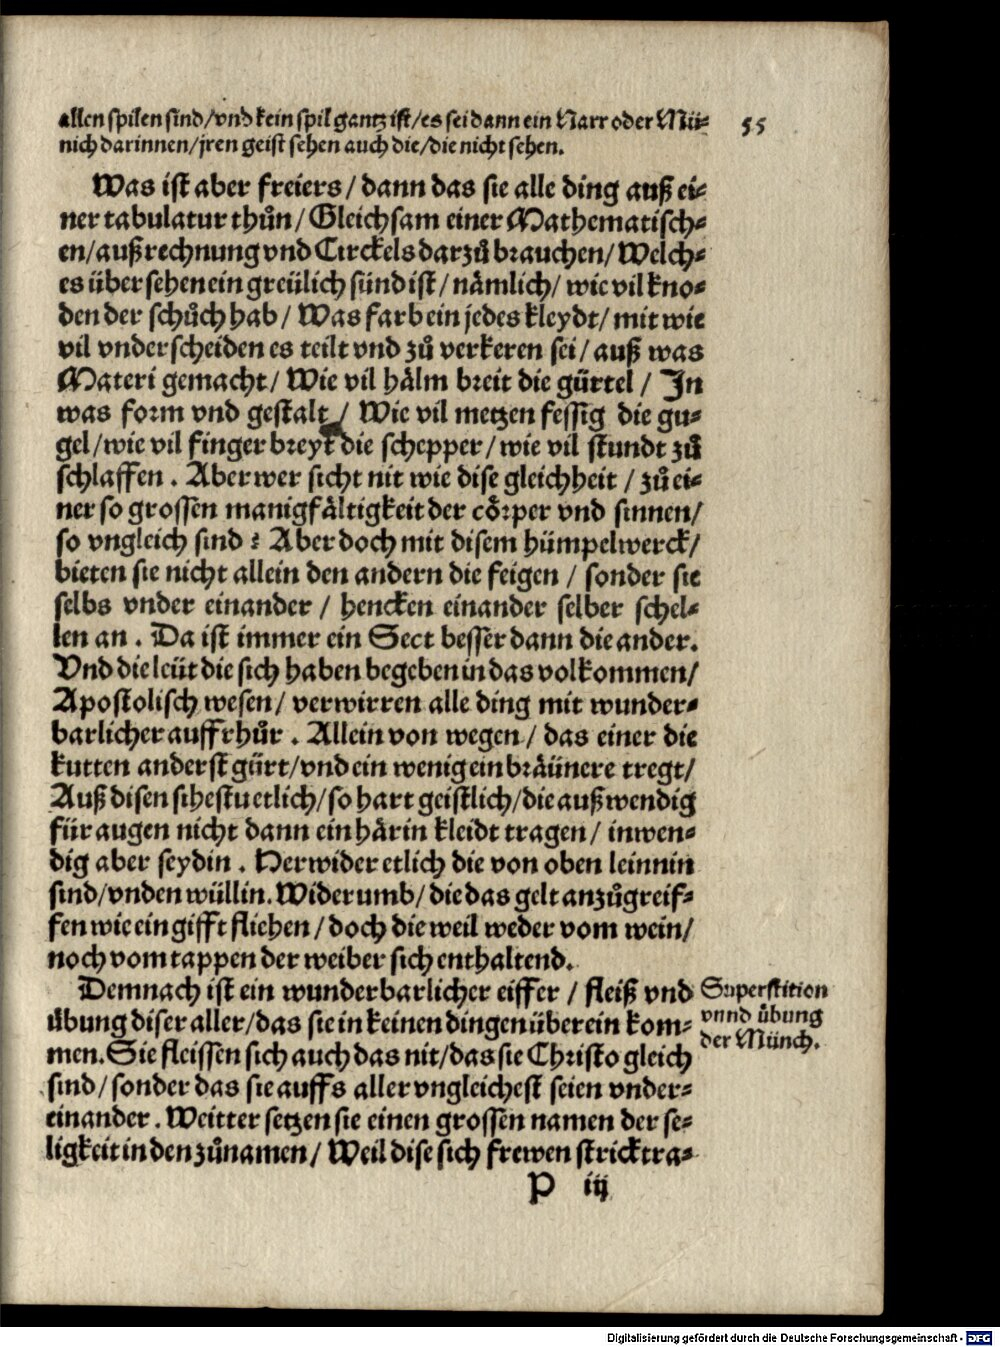 allen spilen sind/vnd kein spil gantz ist/es sei dann ein Narr oder Mü-
nich darinnen/jren geist sehen auch die/die nicht sehen.
55
Was ist aber freiers/dann das sie alle ding auß ei-
ner tabulatur thůn/Gleichsam einer Mathematisch-
en/außrechnung vnd Circkels darzů brauchen/Welch-
es übersehen ein greülich sünd ist/nämlich/wie vil kno-
den der schůch hab/Was farb ein jedes kleydt/mit wie
vil vnderscheiden es teilt vnd zů verkeren sei/auß was
Materi gemacht/Wie vil hälm breit die gürtel/In
was form vnd gestalt/Wie vil metzen fessig die gu-
gel/wie vil finger breyt die schepper/wie vil stundt zů
schlaffen. Aber wer sicht nit wie dise gleichheit/zů ei-
ner so grossen manigfältigkeit der cörper vnd sinnen/
so vngleich sind? Aber doch mit disem hümpelwerck/
bieten sie nicht allein den andern die feigen/sonder sie
selbs vnder einander/hencken einander selber schel-
len an. Da ist immer ein Sect besser dann die ander.
Vnd die leüt die sich haben begeben in das volkommen/
Apostolisch wesen/verwirren alle ding mit wunder-
barlicher auffrhůr. Allein von wegen/das einer die
kutten anderst gürt/vnd ein wenig ein bräünere tregt/
Auß disen sihestu etlich/so hart geistlich/die außwendig
für augen nicht dann ein härin kleidt tragen/inwen-
dig aber seydin. Herwider etlich die von oben leinnin
sind/vnden wüllin. Widerumb/die das gelt anzůgreif-
fen wie ein gifft fliehen/doch die weil weder vom wein/
noch vom tappen der weiber sich enthaltend.
Demnach ist ein wunderbarlicher eiffer/fleiß vnd
übung diser aller/das sie in keinen dingen überein kom-
men. Sie fleissen sich auch das nit/das sie Christo gleich
sind/sonder das sie auffs aller vngleichest seien vnder-
einander. Weitter setzen sie einen grossen namen der se-
ligkeit in den zůnamen/Weil dise sich frewen strick tra-
Superstition
vnnd übung
der Münch.
P iij
Digitalisierung gefördert durch die Deutsche Forschungsgemeinschaft - DFG